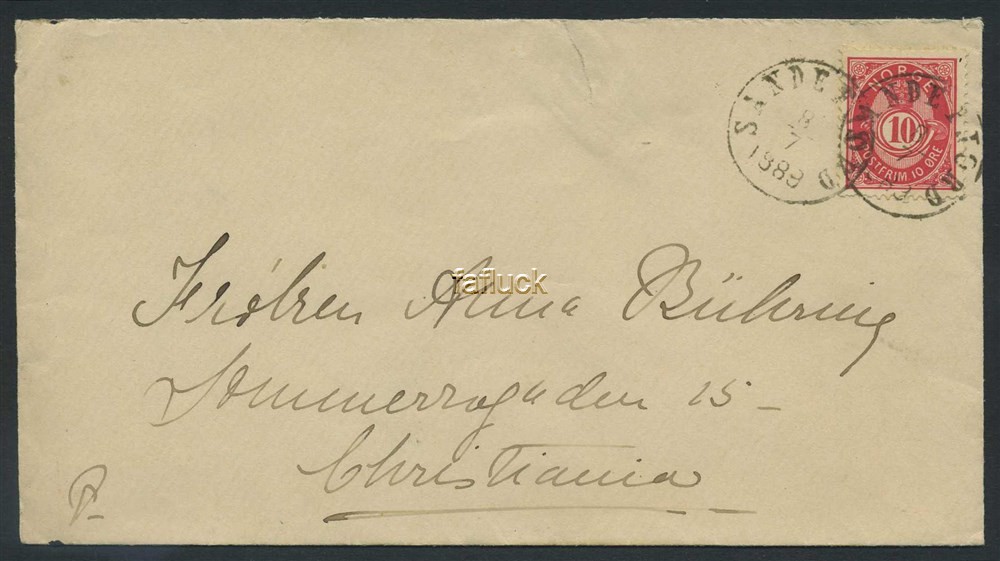 SANDEFJORD
8
7
1889
NORGE
10
POSTFRIM 10 ØRE
failuck
Frøken Anna Bühring
Sommerrogaden 15 -
Christiania